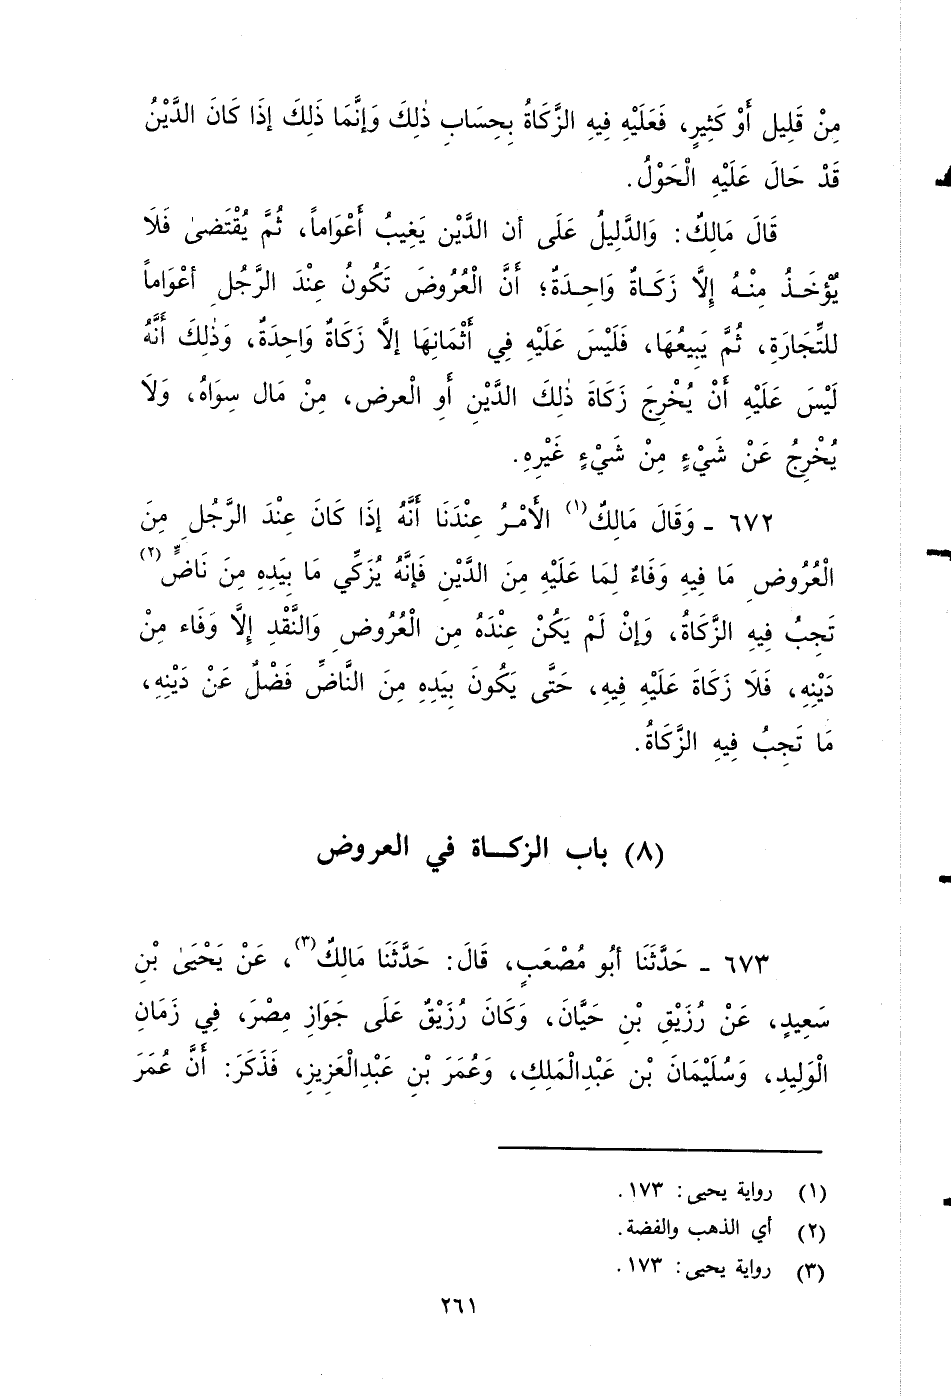 مِنْ قَلِيل أَوْ كَثِيرٍ، فَعَلَيْهِ فِيهِ الزَّكَاةُ بِحِسَابِ ذٰلِكَ وَإِنَّمَا ذَلِكَ إذَا كَانَ الدَّيْنُ
قَدْ حَالَ عَلَيْهِ الْحَوْلُ.
قَالَ مَالِكٌ: وَالدَّلِيلُ عَلَى أن الدَّيْن يَغِيبُ أَعْوَاماً، ثُمَّ يُقْتَضىٰ فَلَا
يُؤْخَذُ مِنْهُ إِلَّا زَكَاةٌ وَاحِدَةٌ؛ أَنَّ الْعُرُوضَ تَكُونُ عِنْدَ الرَّجُلِ أعْوَاماً
للتِّجَارَةِ، ثُمَّ يَبِيعُهَا، فَلَيْسَ عَلَيْهِ فِي أَثْمَانِهَا إلَّا زَكَاةٌ وَاحِدَةٌ، وَذٰلِكَ أَنَّهُ
لَيْسَ عَلَيْهِ أَنْ يُخْرِجَ زَكَاةَ ذٰلِكَ الدَّيْنِ أَوِ الْعرض، مِنْ مَال سِوَاهُ، وَلَا
يُخْرِجُ عَنْ شَيْءٍ مِنْ شَيْءٍ غَيْرِهِ.
٦٧٢ - وَقَالَ مَالِكٌ(١) الأَمْرُ عِنْدَنَا أَنَّهُ إذَا كَانَ عِنْدَ الرَّجُلِ مِنَ
الْعُرُوضِ مَا فِيهِ وَفَاءٌ لِمَا عَلَيْهِ مِنَ الدَّيْنِ فَإِنَّهُ يُزَكِّي مَا بِيَدِهِ مِنَ نَاضٍّ(٢)
تَجِبُ فِيهِ الزَّكَاةُ، وَإنْ لَمْ يَكُنْ عِنْدَهُ مِن الْعُرُوضِ وَالنَّقْدِ إلَّا وَفَاء مِنْ
دَيْنِهِ، فَلَا زَكَاةَ عَلَيْهِ فِيهِ، حَتَّى يَكُونَ بِيَدِهِ مِنَ النَّاضِّ فَضْلٌ عَنْ دَيْنِهِ،
مَا تَجِبُ فِيهِ الزَّكَاةُ.
(٨) باب الزكاة في العروض
٦٧٣ - حَدَّثَنَا أبُو مُصْعَبٍ، قَالَ: حَدَّثَنَا مَالِكٌ(٣)، عَنْ يَحْيَىٰ بْنِ
سَعِيدٍ، عَنْ رُزَيْقِ بْنِ حَيَّانَ، وَكَانَ رُزَيْقٌ عَلَى جَوَازِ مِصْرَ، فِي زَمَانِ
الْوَلِيدِ، وَسُلَيْمَانَ بْنِ عَبْدِالْمَلِكِ، وَعُمَرَ بْنِ عَبْدِالْعَزِيزِ، فَذَكَرَ: أَنَّ عُمَرَ
(١) رواية يحيى: ١٧٣.
(٢) أي الذهب والفضة.
(٣) رواية يحيى: ١٧٣.
٢٦١